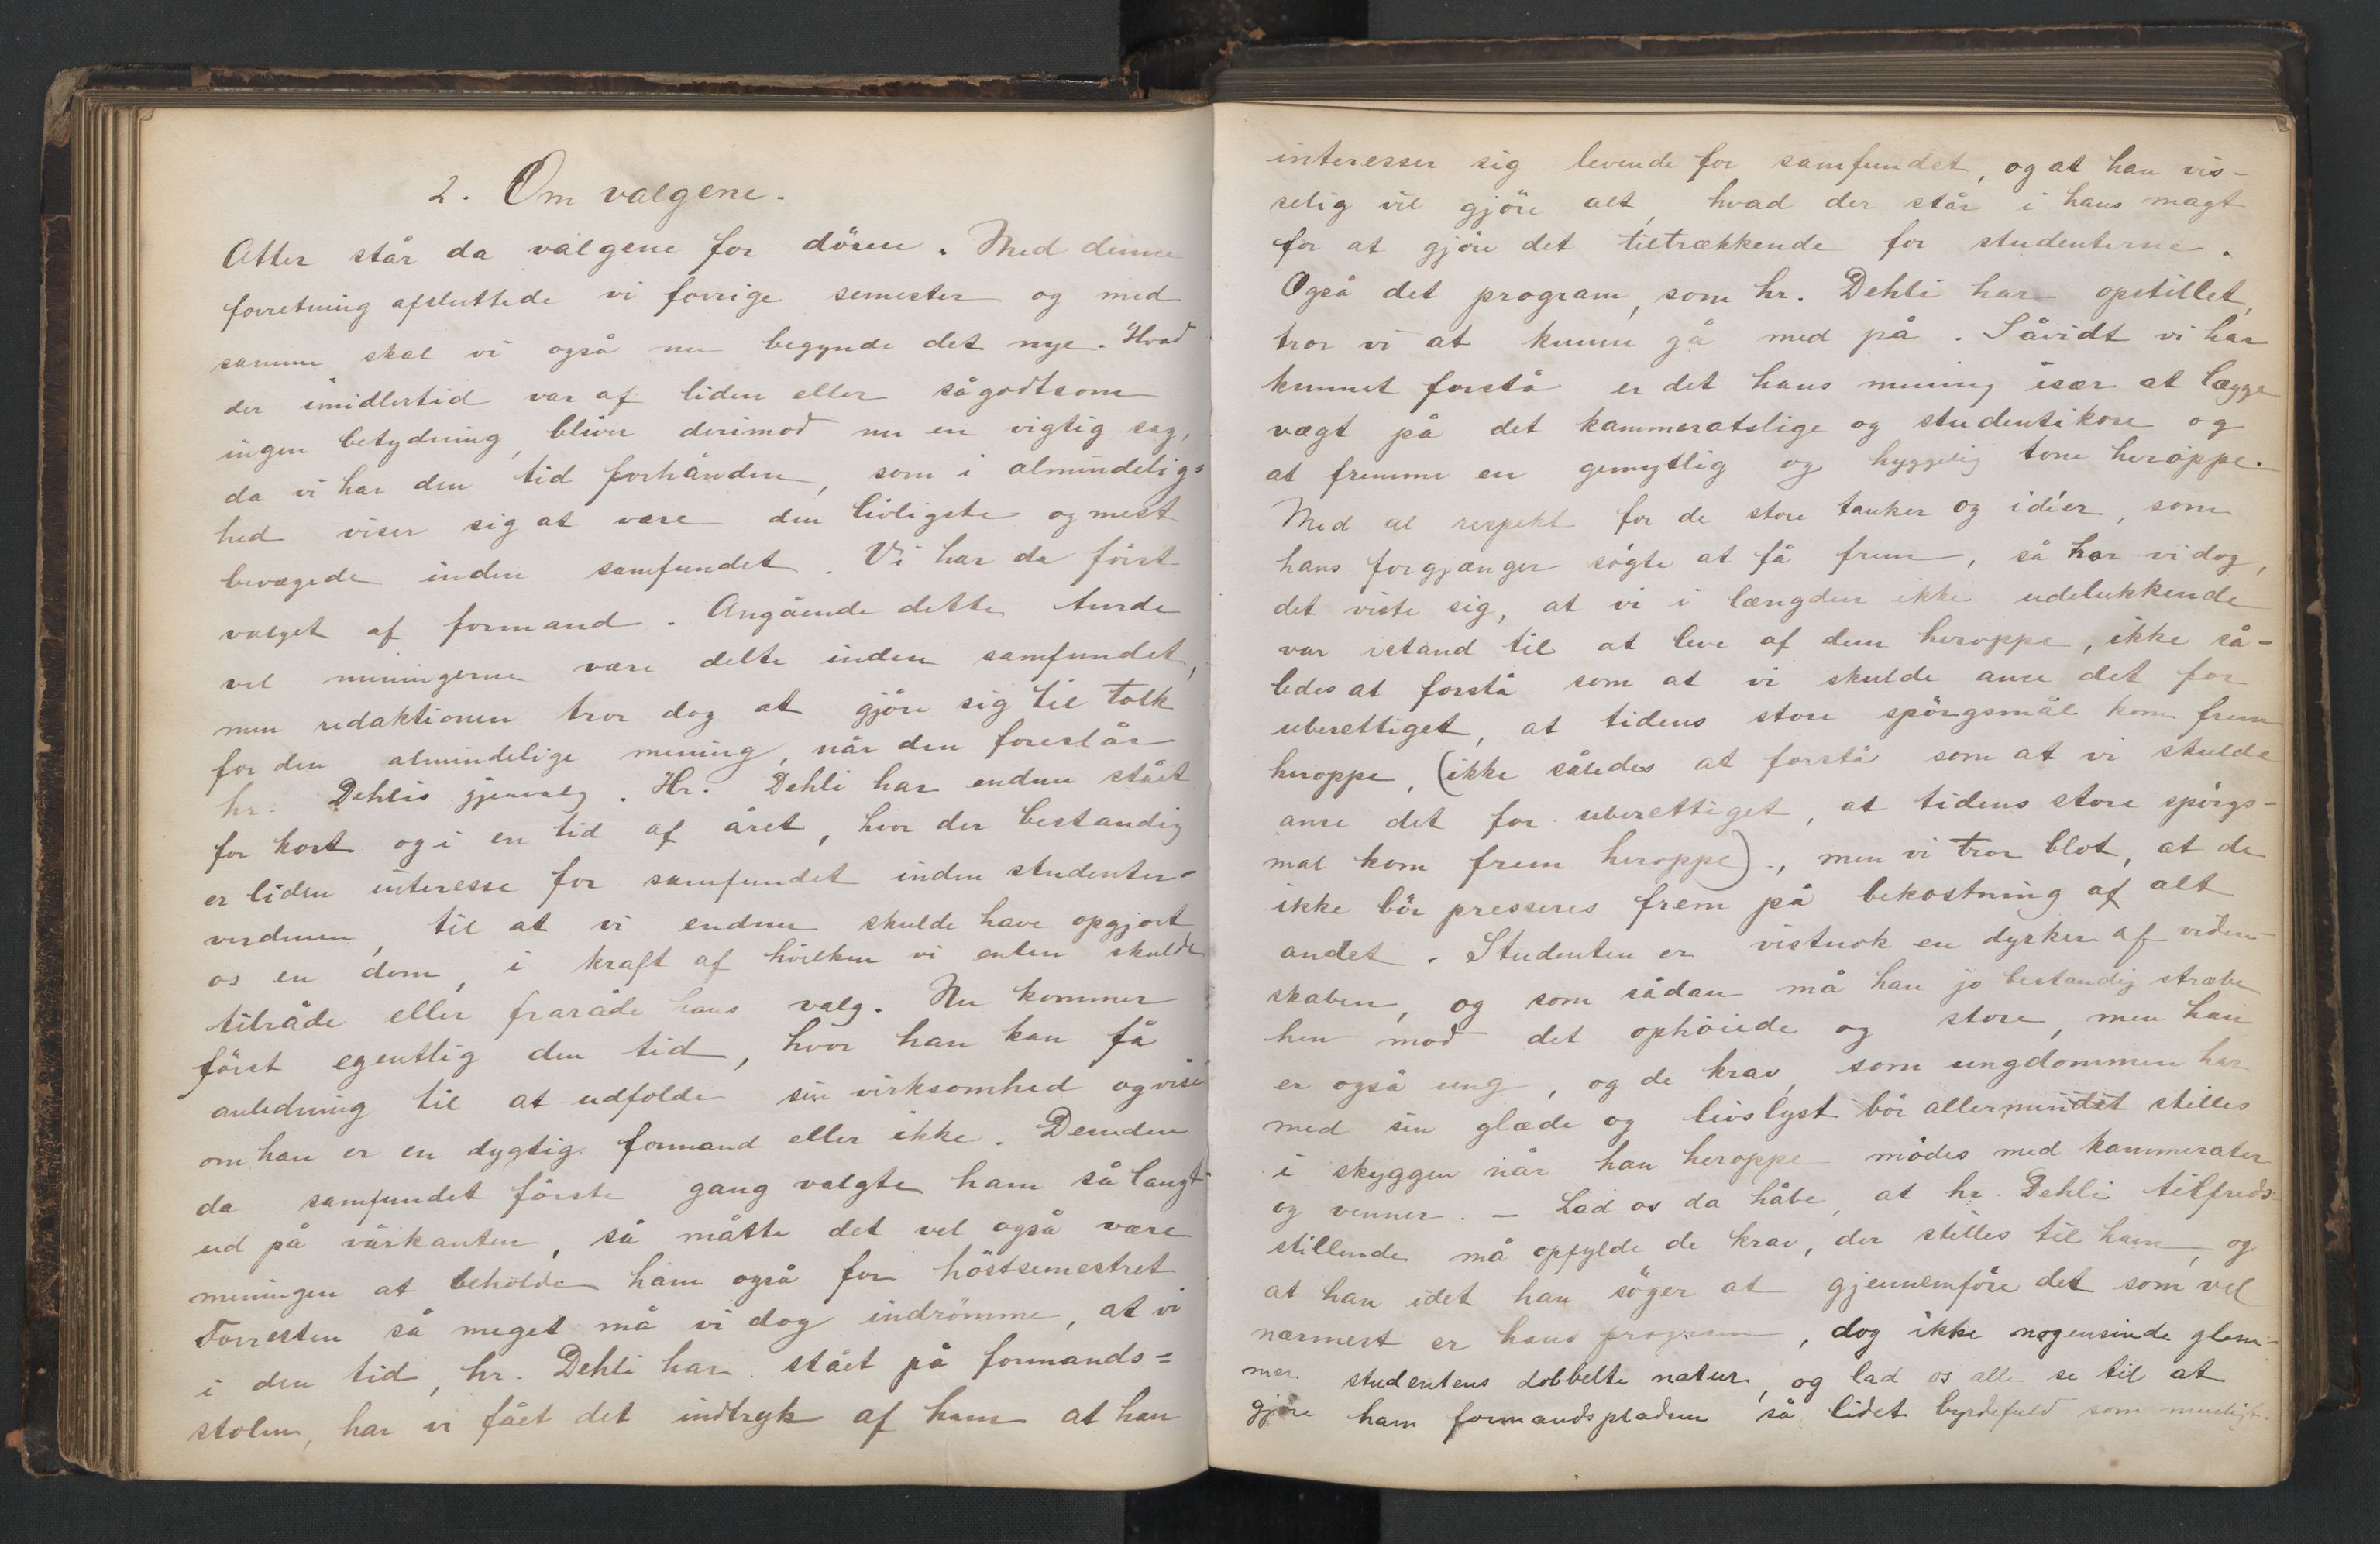 2. Om valgene.
Atter står da valgene for dören. Med denne
forretning afsluttede vi forrige semester og med
samme skal vi også nu begynde det nye. Hvad
der imidlertid var af liden eller sågodtsom
ingen betydning, bliver derimod nu en vigtig sag,
da vi har den tid forhånden, som i almindelig=
hed viser sig at være den livligste og mest
bevægede inden samfundet. Vi har da först
valget af formand. Angående dette turde
vel meningerne være delte inden samfundet,
men redaktionen tror dog at gjöre sig til tolk
for den almindelige mening, når den foreslår
hr. Dehlis gjenvalg. Hr. Dehli har endnu stået
for kort og i en tid af året, hvor der bestandig
er liden interesse for samfundet inden studenter=
verdenen, til at vi endnu skulde have opgjort
os en dom, i kraft af hvilken vi enten skulde
tilråde eller fraråde hans valg. Nu kommer
först egentlig den tid, hvor han kan få
anledning til at udfolde sin virksomhed og vise
om han er en dygtig formand eller ikke. Desuden
da samfundet förste gang valgte ham så langt
ud på vårkanten, så måtte det vel også være
meningen at beholde ham også for höstsemestret
Forresten så meget må vi dog indrömme, at vi
i den tid, hr. Dehli har stået på formands=
stolen, har vi fået det indtryk af ham at han
interesser sig levende for samfundet, og at han vis-
selig vil gjöre alt, hvad der står i hans magt
for at gjöre det tiltrækkende for studenterne.
Også det program, som hr. Dehli har opstillet,
tror vi at kunne gå med på. Såvidt vi har
kunnet forstå er det hans mening især at lægge
vægt på det kammeratslige og studentikose og
at fremme en gemytlig og hyggelig tone heroppe.
Med al respekt for de store tanker og idéer, som
hans forgjænger sögte at få frem, så har vi dog,
det viste sig, at vi i længden ikke udelukkende
var istand til at leve af dem heroppe, ikke så-
ledes at forstå som at vi skulde anse det for
uberettiget, at tidens store spörgsmål kom frem
heroppe, (ikke således at forstå som at vi skulde
anse det for uberettiget, at tidens store spörgs-
mal kom frem heroppe)., men vi tror blot, at de
ikke bör presseres frem på bekostning af alt
andet. Studenten er vistnok en dyrker af viden-
skaben, og som sådan må han jo bestandig stræbe
hen mod det ophöiede og store, men han
er også ung, og de krav, som ungdommen har
med sin glæde og livslyst bör allermindst stilles
i skyggen når han heroppe mödes med kammerater
og venner. – Lad os da håbe, at hr. Dehli tilfreds
stillende må opfylde de krav, der stilles til ham, og
at han idet han söger at gjennemföre det som vel
nærmest er hans program, dog ikke nogensinde glem-
mer studentens dobbelte natur, og lad os alle se til at
gjöre ham formandspladsen så lidet byrdefuld som muligt.